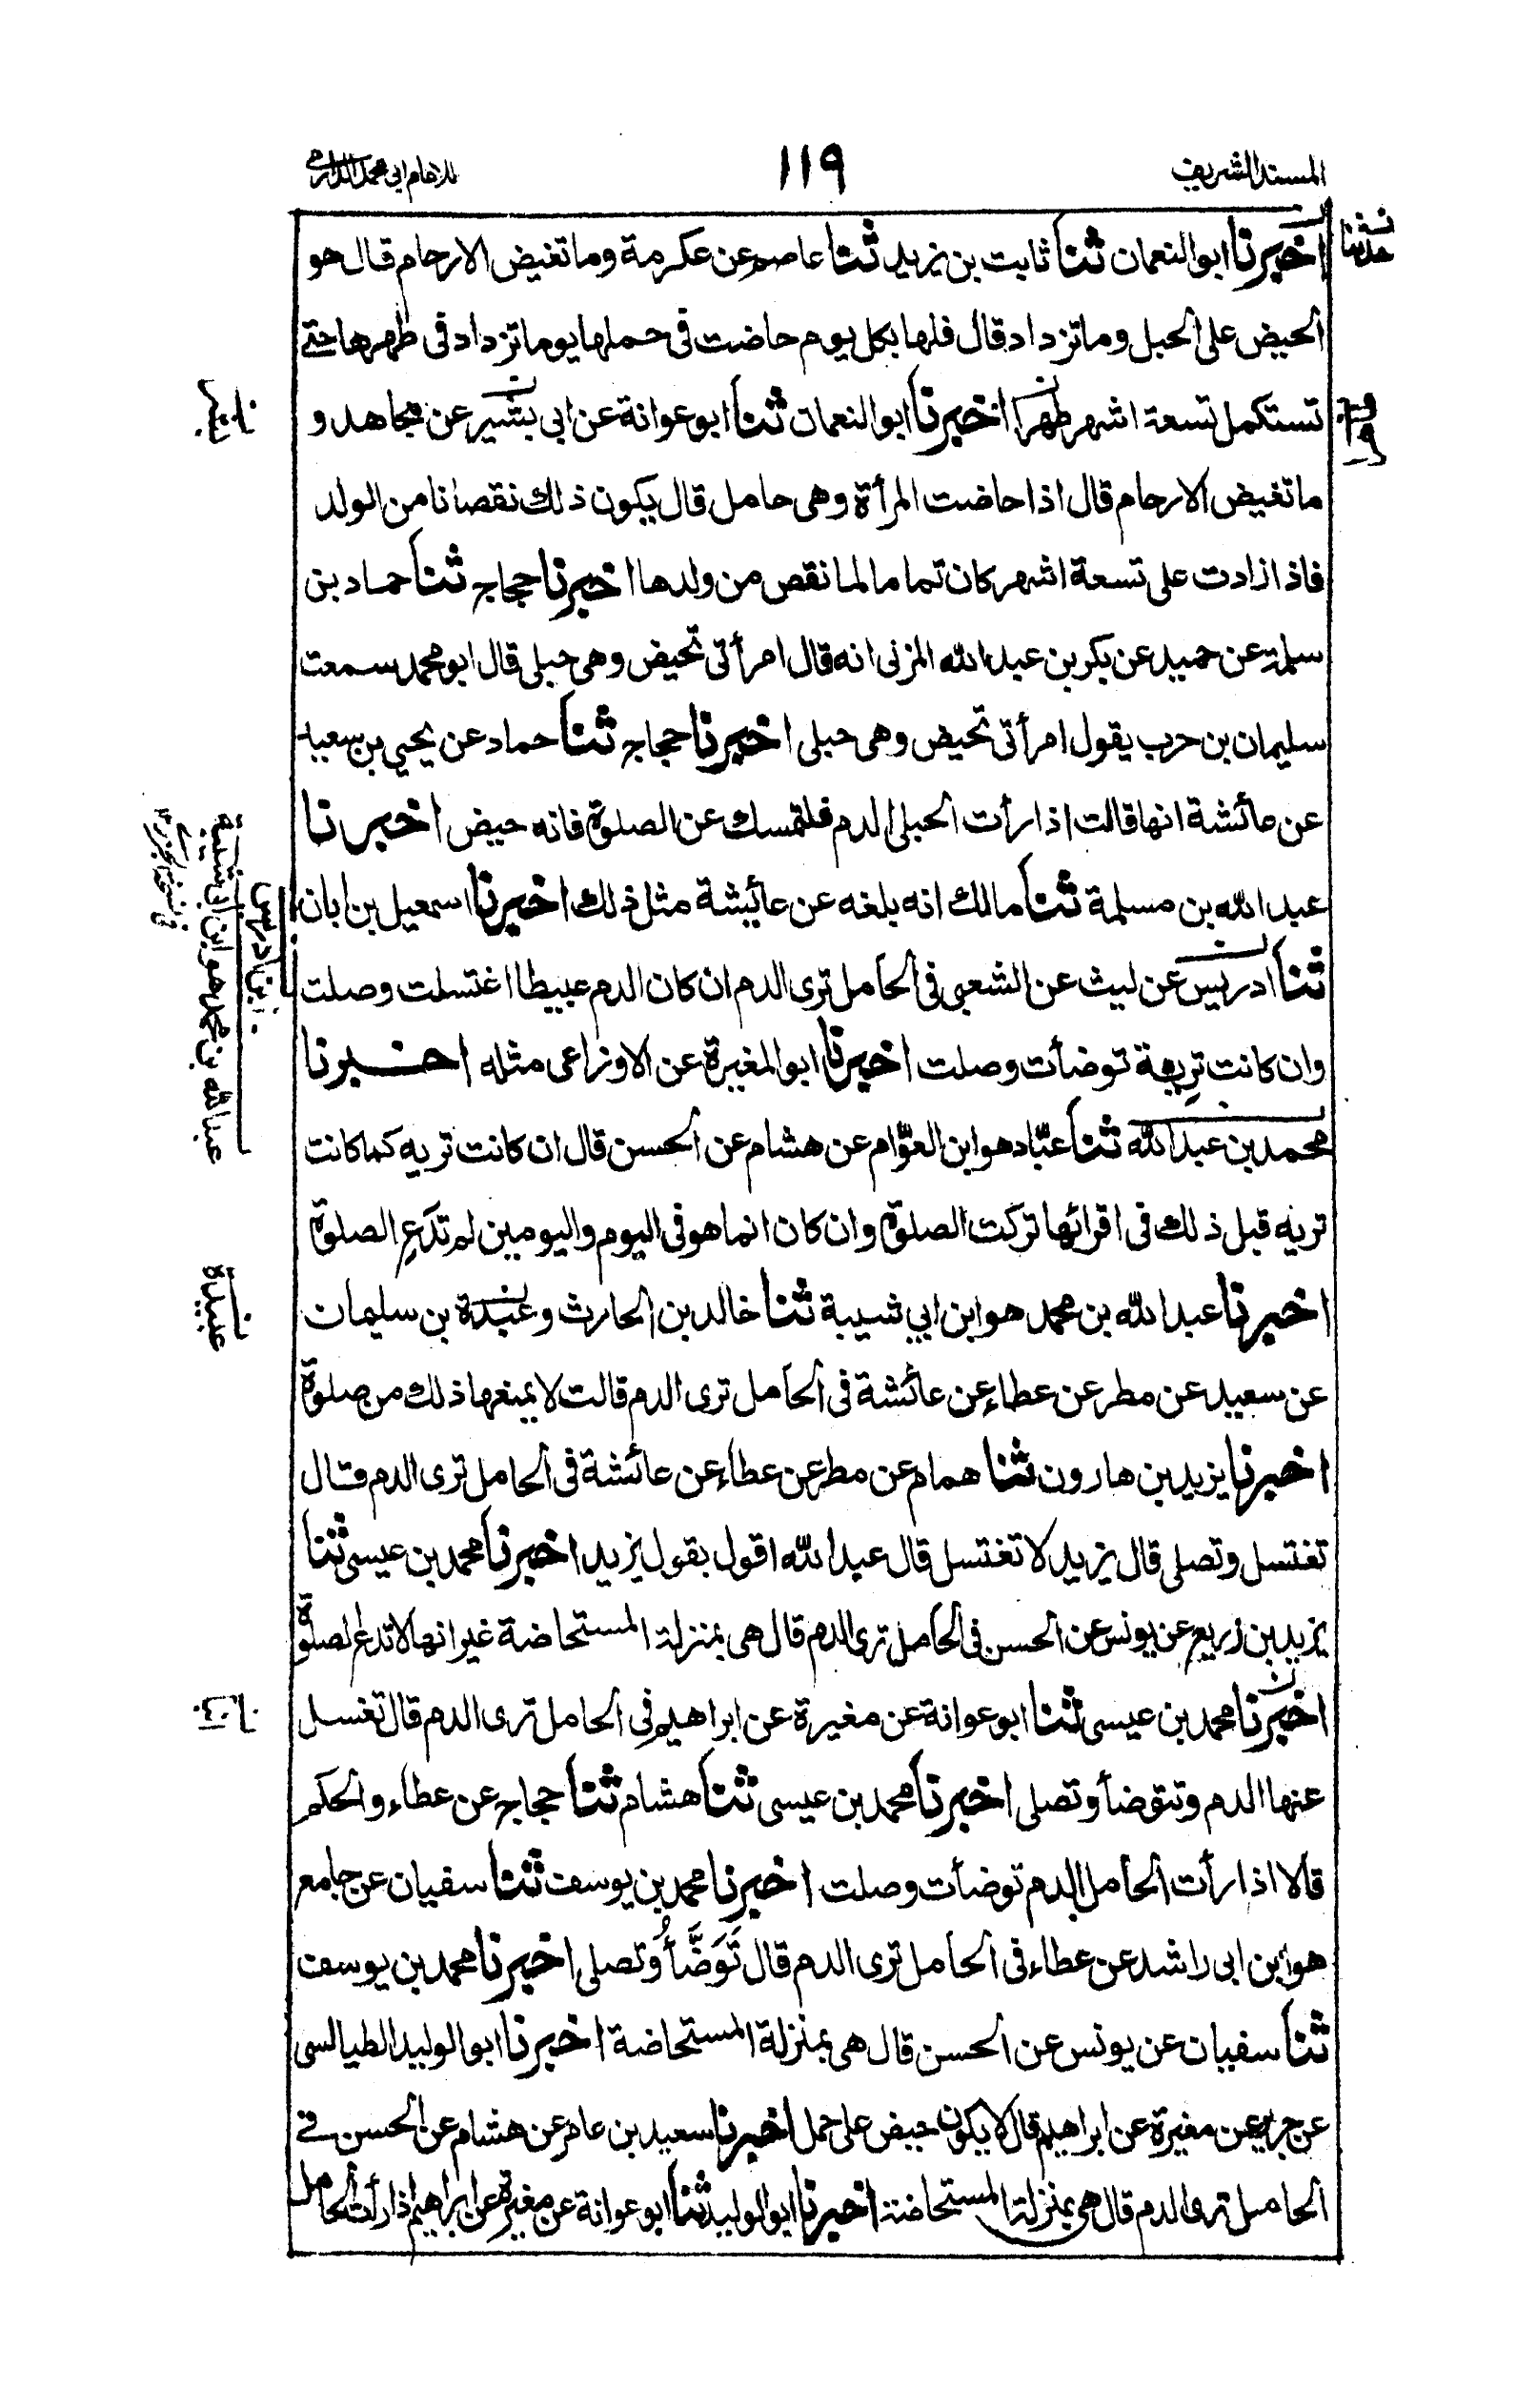 المسند الشريف
١١٩
للامام ابى محمد الدارمى
حدثنا
اخبرنا ابو النعمان ثنا ثابت بن يزيد ثنا عاصم عن عكرمة وما تغيض الارحام قال هو
الحيض على الحبل وما تزداد قال فلها بكل يوم حاضت فى حملها يوما تزداد فى طهرها حتے
تستكمل تسعة اشهر طهرا اخبرنا ابو النعمان ثنا ابو عوانة عن ابى بشير عن مجاهد و
ما تغيض الارحام قال اذا حاضت المرأة وهى حامل قال يكون ذلك نقصانا من الولد
فاذا زادت على تسعة اشهر كان تماما لما نقص من ولدها اخبرنا حجاج ثنا حماد بن
سلمة عن حميد عن بكر بن عبد الله المزنى انه قال امرأتى تحيض وهى حبلى قال ابو محمد سمعت
سليمان بن حرب يقول امرأتى تحيض وهى حبلى اخبرنا حجاج ثنا حماد عن يحيى بن سعيد
عن عائشة انها قالت اذا رأت الحبلى الدم فلتمسك عن الصلوة فانه حيض اخبرنا
عبد الله بن مسلمة ثنا مالك انه بلغه عن عائيشة مثل ذلك اخبرنا اسمعيل بن ابان
ثنا ادريس عن ليث عن الشعبى فى الحامل ترى الدم ان كان الدم عبيطا اغتسلت وصلت
وان كانت تريعة توضأت وصلت اخبرنا ابو المغيرة عن الاوزاعى مثله اخبرنا
محمد بن عبد الله ثنا عبّاد هو ابن العوّام عن هشام عن الحسن قال ان كانت تريه كما كانت
تريه قبل ذلك فى اقرائها تركت الصلوة وان كان انما هو فى اليوم واليومين لم تدَعِ الصلوة
اخبرنا عبد الله بن محمد هو ابن ابي شيبة ثنا خالد بن الحارث وعبدة بن سليمان
عن سعيد عن مطر عن عطاء عن عائشة فى الحامل ترى الدم قالت لا يمنعها ذلك من صلوة
اخبرنا يزيد بن هارون ثنا همام عن مطر عن عطاء عن عائشة فى الحامل ترى الدم قال
تغتسل وتصلى قال يزيد لا تغتسل قال عبد الله اقول بقول يزيد اخبرنا محمد بن عيسى ثنا
يزيد بن زريع عن يونس عن الحسن فى الحامل ترى الدم قال هى بمنزلة المستحاضة غير انها لا تدع الصلوة
اخبرنا محمد بن عيسى ثنا ابو عوانة عن مغيرة عن ابراهيم فى الحامل ترى الدم قال تغسل
عنها الدم وتتوضأ وتصلى اخبرنا محمد بن عيسى ثنا هشام ثنا حجاج عن عطاء والحكم
قالا اذا رأت الحامل الدم توضأت وصلت اخبرنا محمد بن يوسف ثنا سفيان عن جامع
هو ابن ابى راشد عن عطاء فى الحامل ترى الدم قال تَوَضَّأُ وتصلى اخبرنا محمد بن يوسف
ثنا سفيان عن يونس عن الحسن قال هى بمنزلة المستحاضة اخبرنا ابو الوليد الطيالسى
عن جرير عن مغيرة عن ابراهيم قال لا يكون حيض على حمل اخبرنا سعيد بن عامر عن هشام عن الحسن فے
الحامل ترى الدم قال هى بمنزلة المستحاضة اخبرنا ابو الوليد ثنا ابو عوانة عن مغيرة عن ابراهيم اذا رأت الحامل
ابن ادريس
عبد الله بن محمد هو ابن ابى شيبة
عبيدة